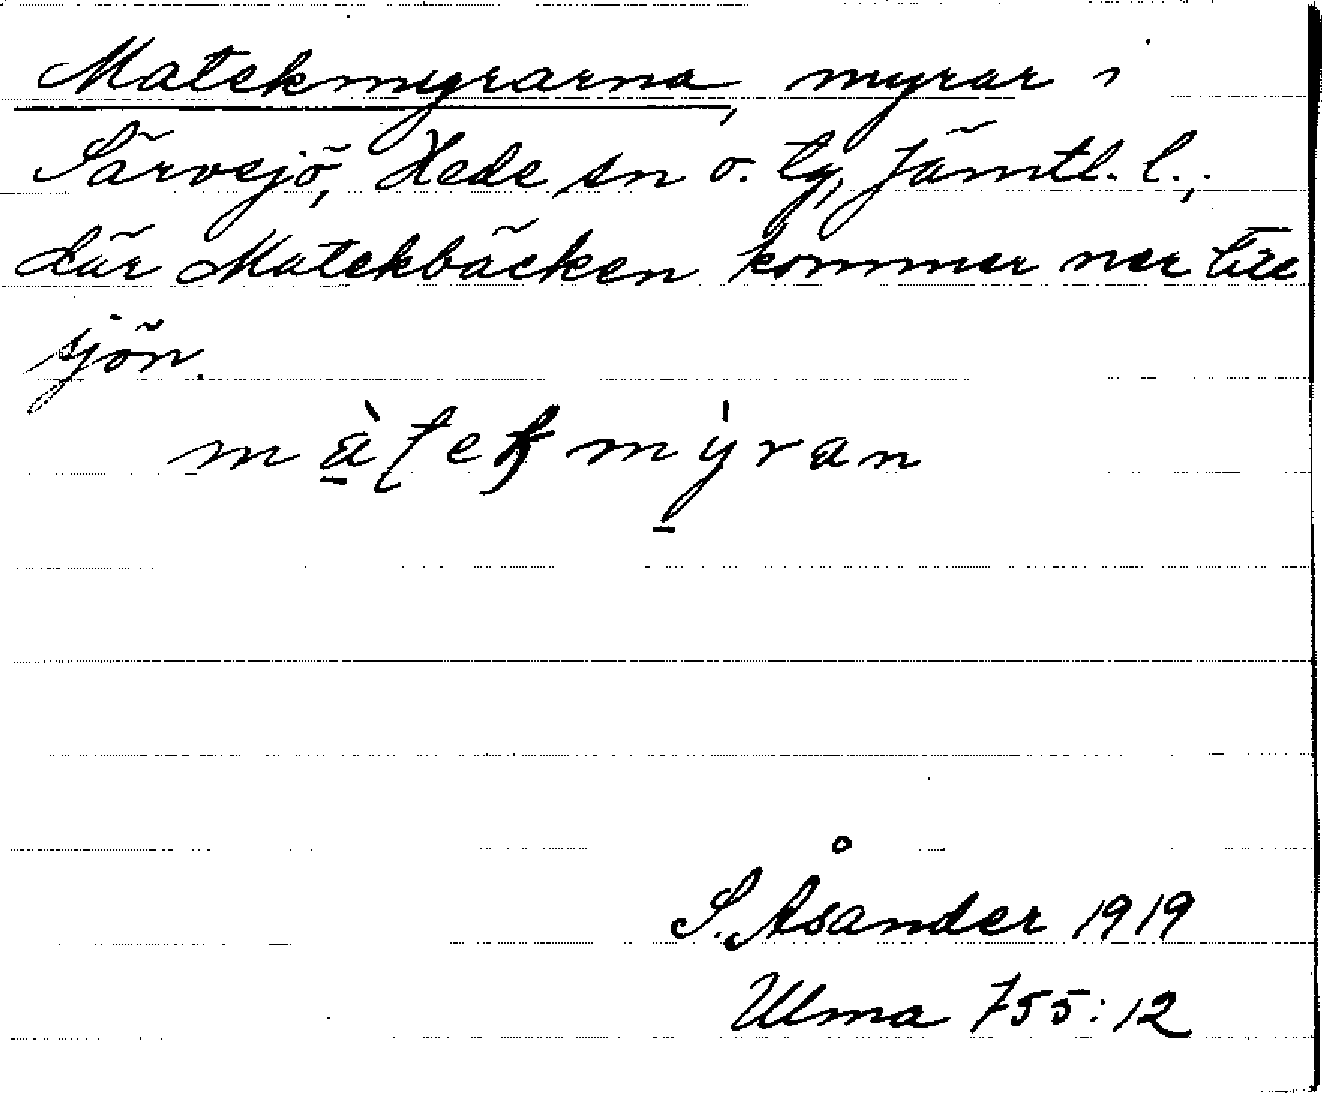 Matekmyrarna, myrar i
Särvsjö, Hede sn o. tg, Jämtl. l.,
där Matekbäcken kommer ner till
sjön.
màtekmýran
S. Åsander 1919
Ulma 755:12